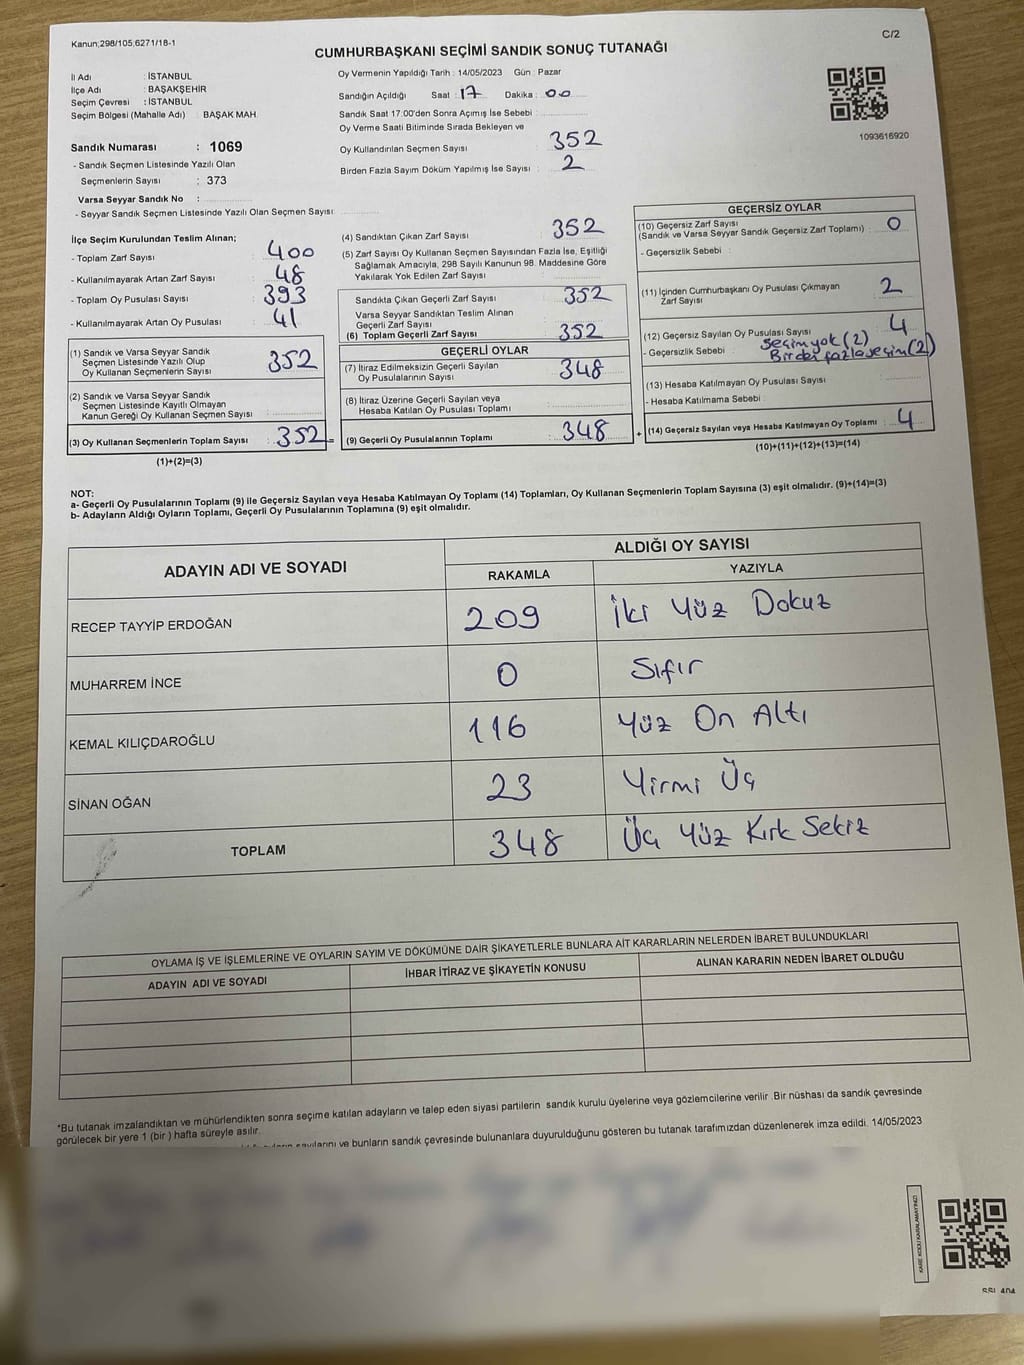 Kanun;298/105,6271/18-1
C/2
CUMHURBAŞKANI SEÇİMİ SANDIK SONUÇ TUTANAĞI
İl Adı : İSTANBUL
İlçe Adı : BAŞAKŞEHİR
Seçim Çevresi : İSTANBUL
Seçim Bölgesi (Mahalle Adı) : BAŞAK MAH.
Oy Vermenin Yapıldığı Tarih : 14/05/2023 Gün : Pazar
Sandığın Açıldığı Saat : 17 Dakika : 00
Sandık Saat 17:00'den Sonra Açımış İse Sebebi :
Oy Verme Saati Bitiminde Sırada Bekleyen ve
Oy Kullandırılan Seçmen Sayısı : 352
Birden Fazla Sayım Döküm Yapılmış İse Sayısı : 2
1093616920
Sandık Numarası : 1069
- Sandık Seçmen Listesinde Yazılı Olan
Seçmenlerin Sayısı : 373
Varsa Seyyar Sandık No :
- Seyyar Sandık Seçmen Listesinde Yazılı Olan Seçmen Sayısı :
İlçe Seçim Kurulundan Teslim Alınan;
- Toplam Zarf Sayısı : 400
- Kullanılmayarak Artan Zarf Sayısı : 48
- Toplam Oy Pusulası Sayısı : 393
- Kullanılmayarak Artan Oy Pusulası : 41
(1) Sandık ve Varsa Seyyar Sandık
Seçmen Listesinde Yazılı Olup
Oy Kullanan Seçmenlerin Sayısı : 352
(2) Sandık ve Varsa Seyyar Sandık
Seçmen Listesinde Kayıtlı Olmayan
Kanun Gereği Oy Kullanan Seçmen Sayısı :
(3) Oy Kullanan Seçmenlerin Toplam Sayısı : 352 =
(1)+(2)=(3)
(4) Sandıktan Çıkan Zarf Sayısı : 352
(5) Zarf Sayısı Oy Kullanan Seçmen Sayısından Fazla İse, Eşitliği
Sağlamak Amacıyla, 298 Sayılı Kanunun 98. Maddesine Göre
Yakılarak Yok Edilen Zarf Sayısı :
Sandıkta Çıkan Geçerli Zarf Sayısı : 352
Varsa Seyyar Sandıktan Teslim Alınan
Geçerli Zarf Sayısı :
(6) Toplam Geçerli Zarf Sayısı : 352
GEÇERLİ OYLAR
(7) İtiraz Edilmeksizin Geçerli Sayılan
Oy Pusulalarının Sayısı : 348
(8) İtiraz Üzerine Geçerli Sayılan veya
Hesaba Katılan Oy Pusulası Toplamı :
(9) Geçerli Oy Pusulalarının Toplamı : 348 +
GEÇERSİZ OYLAR
(10) Geçersiz Zarf Sayısı
(Sandık ve Varsa Seyyar Sandık Geçersiz Zarf Toplamı) : 0
- Geçersizlik Sebebi :
(11) İçinden Cumhurbaşkanı Oy Pusulası Çıkmayan
Zarf Sayısı : 2
(12) Geçersiz Sayılan Oy Pusulası Sayısı : 4
- Geçersizlik Sebebi : Seçim yok (2)
Birden fazla seçim (2)
(13) Hesaba Katılmayan Oy Pusulası Sayısı :
- Hesaba Katılmama Sebebi :
(14) Geçersiz Sayılan veya Hesaba Katılmayan Oy Toplamı : 4
(10)+(11)+(12)+(13)=(14)
NOT:
a- Geçerli Oy Pusulalarının Toplamı (9) ile Geçersiz Sayılan veya Hesaba Katılmayan Oy Toplamı (14) Toplamları, Oy Kullanan Seçmenlerin Toplam Sayısına (3) eşit olmalıdır. (9)+(14)=(3)
b- Adayların Aldığı Oyların Toplamı, Geçerli Oy Pusulalarının Toplamına (9) eşit olmalıdır.
ADAYIN ADI VE SOYADI
ALDIĞI OY SAYISI
RAKAMLA YAZIYLA
RECEP TAYYİP ERDOĞAN 209 İki Yüz Dokuz
MUHARREM İNCE 0 Sıfır
KEMAL KILIÇDAROĞLU 116 Yüz On Altı
SİNAN OĞAN 23 Yirmi Üç
TOPLAM 348 Üç Yüz Kırk Sekiz
OYLAMA İŞ VE İŞLEMLERİNE VE OYLARIN SAYIM VE DÖKÜMÜNE DAİR ŞİKAYETLERLE BUNLARA AİT KARARLARIN NELERDEN İBARET BULUNDUKLARI
ADAYIN ADI VE SOYADI İHBAR İTİRAZ VE ŞİKAYETİN KONUSU ALINAN KARARIN NEDEN İBARET OLDUĞU
*Bu tutanak imzalandıktan ve mühürlendikten sonra seçime katılan adayların ve talep eden siyasi partilerin sandık kurulu üyelerine veya gözlemcilerine verilir. Bir nüshası da sandık çevresinde
görülecek bir yere 1 (bir) hafta süreyle asılır.
sayılarını ve bunların sandık çevresinde bulunanlara duyurulduğunu gösteren bu tutanak tarafımızdan düzenlenerek imza edildi. 14/05/2023
KARE KODU KARALAMAYINIZ!